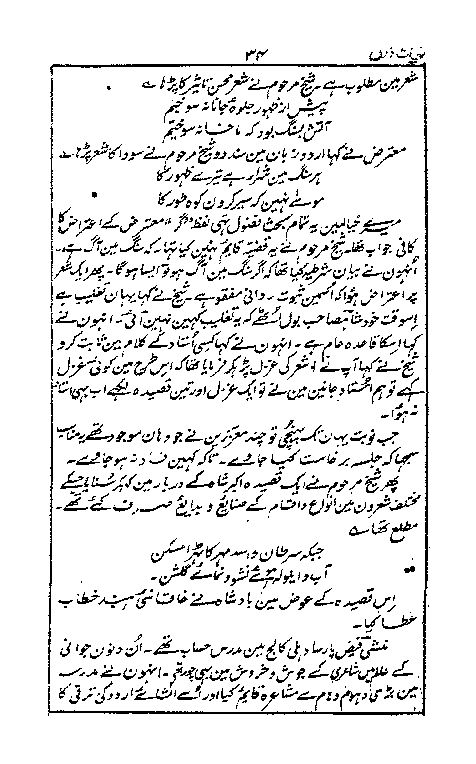 ۳۴
شعر مین مطلوب ہے۔ شیخ مرحوم نے شعر محسن تاثیر کا پڑھا ے
پیش از ظہور جلوۂ جانانہ سوختیم
آتش بسنگ بود کہ ما خانہ سوختیم
معترض نے کہا اردو زبان مین سند دو شیخ مرحوم نے سودا کا شعر پڑھا ے
ہر سنگ مین شرار ہے تیرے ظہور کا
موسےٰ نہین کہ سیر کرون کوہ طور کا
میرے خیالمین یہ تمام بحث فضول تہی لفظ اگر معترض کے اعتراض کا
کافی جواب تھا۔ شیخ مرحوم نے یہ قضیہ قایم نہین کیا تہا کہ سنگ مین آگ ہے۔
اُنہون نے بیان شرطیہ کیا تھا کہ اگر سنگ مین آگ ہو تو ایسا ہوگا۔ پھر ایک شعر
پر اعتراض ہوا کہ اسمین ثبوت روانی مفقود ہے۔ شیخ نے کہا یہان تغلیب ہے
اسوقت خود شاہصاحب بول اُٹھے کہ یہ تغلیب کہین نہین آئی۔ انہون نے
کہا اسکا قاعدہ عام ہے۔ انہون نے کہا کسی اُستاد کے کلام مین ثابت کرو
شیخ نے کہا آپ نے ۹ شعر کی غزل پڑھکر فرمایا تھا کہ اس طرح مین کوئی غزل
کہے تو ہم اُستاد جانین مین نے تو ایک غزل اور تین قصیدہ لکھے اب بہی اُستاد
نہ ہوا۔
جب نوبت یہان تک پہنچی تو چند معززین نے جو وہان موجود تھے یہ مناسب
سمجہا کہ جلسہ برخاست کیا جاوے۔ تاکہ کہین فساد نہ ہو جاوے۔
پھر شیخ مرحوم نے ایک قصیدہ اکبر شاہ کے دربار مین کہکر سُنایا جسکے
مختلف شعرون مین انواع و اقسام کے صنایع و بدایع صرف کئے تھے۔
مطلع تھا ے
جبکہ سرطان و اسد مہر کا ٹھرا مسکن
آب و ایلولہ ہوئے نشو و نمائے گلشن۔
اس قصیدہ کے عوض مین بادشاہ نے خاقانی ہند خطاب
عطا کیا۔
منشی فیض پارسا دہلی کالج مین مدرس حساب تھے۔ اُن دنون جوانی
کے عالم مین شاعری کے جوش و خروش مین بہی انہون نے مدرسہ
مین بڑی دہوم دہام سے مشاعرہ قایم کیا اور اُسے انشائے اردو کی ترقی کا